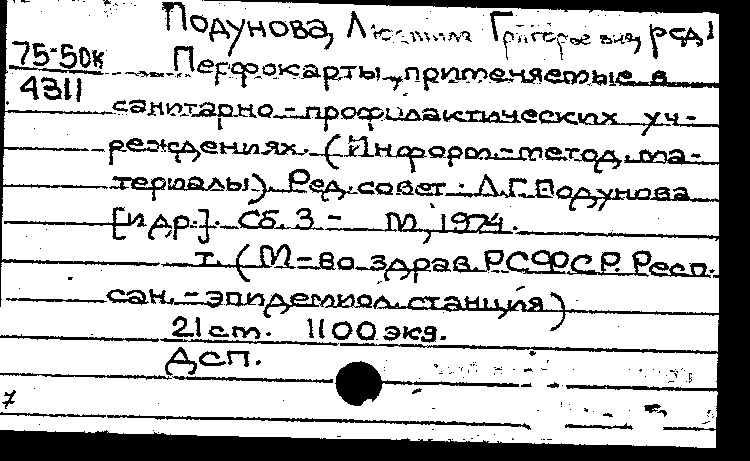 Подунова, Людмила Григорьевна, ред.
75-50к
4311
Перфокарты, применяемые в
санитарно-профилактических уч-
реждениях. (Информ.-метод. ма-
териалы). Ред. совет: Л.Г. Подунова
[и др.]. Сб. 3 - М, 1974.
т. (М-во здрав. РСФСР. Респ.
сан.-эпидемиол. станция)
21 cm. 1100 экз.
ДСП.
7